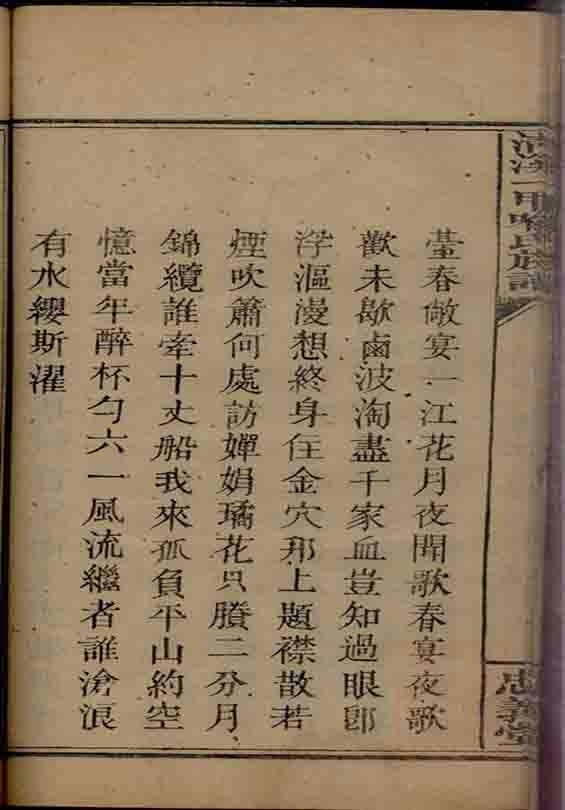 臺春敞宴一江花月夜開歌春宴夜歌
歡未歇鹵波淘盡千家血豈知過眼即
浮漚漫想終身住金穴那上題襟散若
煙吹簫何處訪嬋娟璚花只賸二分月
錦纜誰牽十丈船我來孤負平山約空
憶當年醉杯勺六一風流繼者誰滄浪
有水纓斯濯
忠義堂